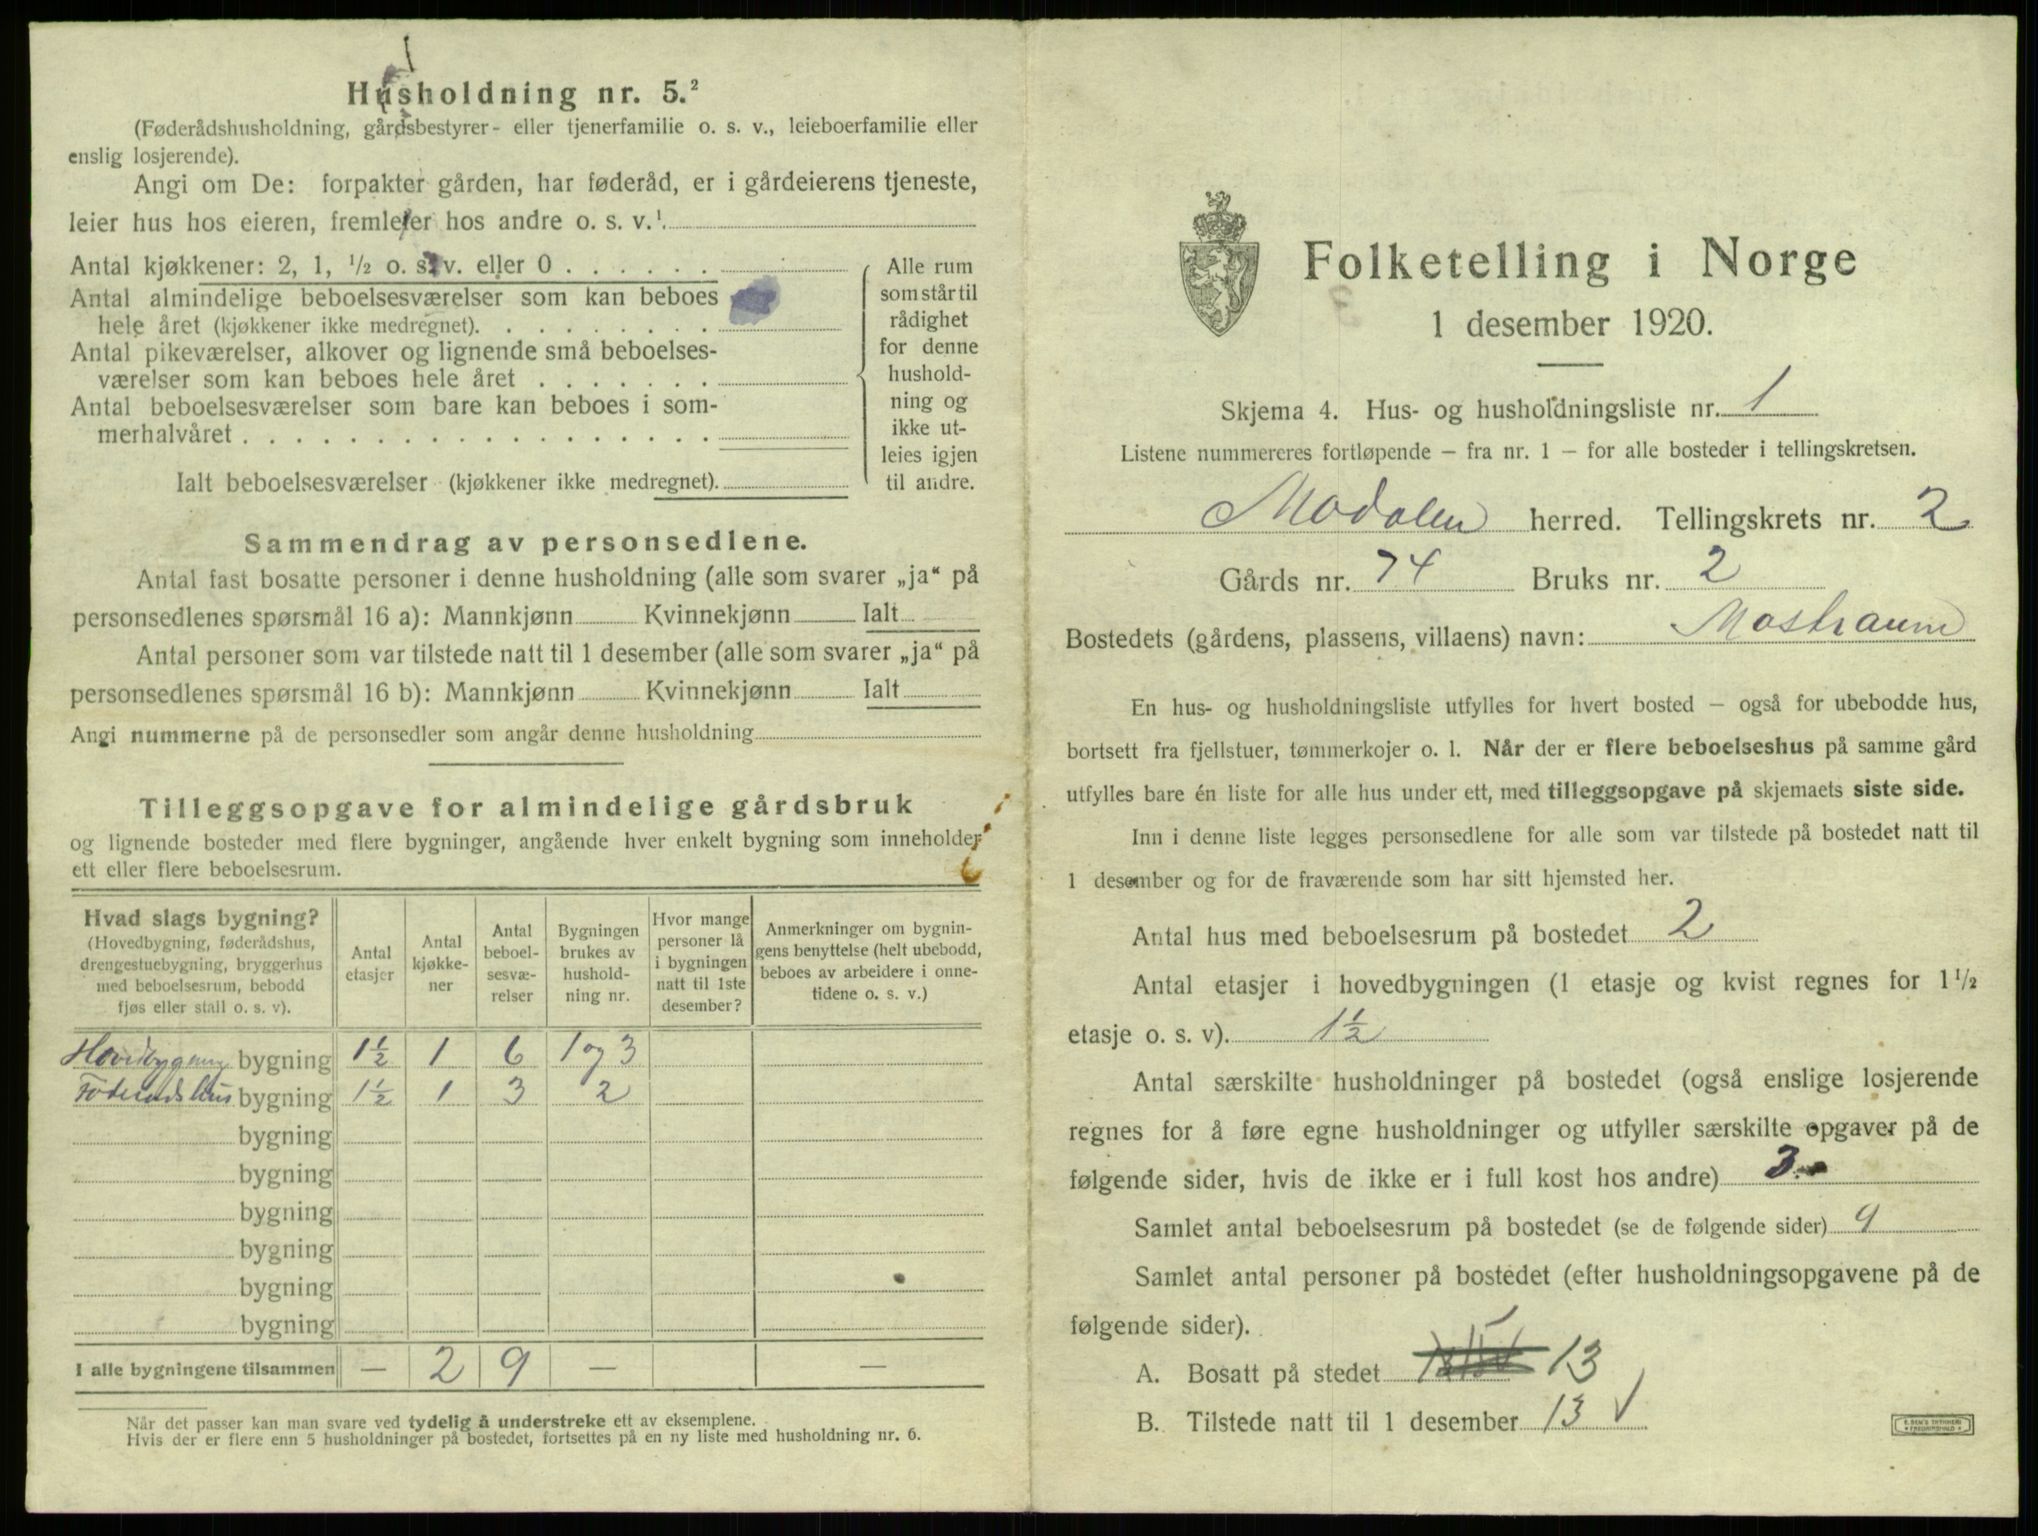 Husholdning nr. 5.²
(Føderådshusholdning, gårdsbestyrer- eller tjenerfamilie o. s. v., leieboerfamilie eller
enslig losjerende).
Angi om De: forpakter gården, har føderåd, er i gårdeierens tjeneste,
leier hus hos eieren, fremleier hos andre o. s. v.¹.
Antal kjøkkener: 2, 1, ½ o. s. v. eller 0 . . . . . .
Antal almindelige beboelsesværelser som kan beboes
hele året (kjøkkener ikke medregnet). . . . . . . . .
Antal pikeværelser, alkover og lignende små beboelses-
værelser som kan beboes hele året . . . . . . .
Antal beboelsesværelser som bare kan beboes i som-
merhalvåret . . . . . . . . . . . . . . . . . .
Alle rum
som står til
rådighet
for denne
hushold-
ning og
ikke ut-
leies igjen
til andre.
Ialt beboelsesværelser (kjøkkener ikke medregnet).
Sammendrag av personsedlene.
Antal fast bosatte personer i denne husholdning (alle som svarer „ja“ på
personsedlenes spørsmål 16 a): Mannkjønn Kvinnekjønn Ialt
Antal personer som var tilstede natt til 1 desember (alle som svarer „ja“ på
personsedlenes spørsmål 16 b): Mannkjønn Kvinnekjønn Ialt
Angi nummerne på de personsedler som angår denne husholdning
Tilleggsopgave for almindelige gårdsbruk
og lignende bosteder med flere bygninger, angående hver enkelt bygning som inneholder
ett eller flere beboelsesrum.
Hvad slags bygning?
(Hovedbygning, føderådshus,
drengestuebygning, bryggerhus
med beboelsesrum, bebodd
fjøs eller stall o. s. v).
Antal
etasjer
Antal
kjøkke-
ner
Antal
beboel-
sesvæ-
relser
Bygningen
brukes av
hushold-
ning nr.
Hvor mange
personer lå
i bygningen
natt til 1ste
desember?
Anmerkninger om bygnin-
gens benyttelse (helt ubebodd,
beboes av arbeidere i onne-
tidene o. s. v.)
Hovedbygning bygning 1½ 1 6 1 og 3
Föderaadshus bygning 1½ 1 3 2
bygning
bygning
bygning
bygning
bygning
bygning
I alle bygningene tilsammen — 2 9 — —
Når det passer kan man svare ved tydelig å understreke ett av eksemplene.
Hvis der er flere enn 5 husholdninger på bostedet, fortsettes på en ny liste med husholdning nr. 6.
Folketelling i Norge
1 desember 1920.
Skjema 4. Hus- og husholdningsliste nr. 1
Listene nummereres fortløpende – fra nr. 1 – for alle bosteder i tellingskretsen.
Modalen herred. Tellingskrets nr. 2
Gårds nr. 74 Bruks nr. 2
Bostedets (gårdens, plassens, villaens) navn: Mostraum
En hus- og husholdningsliste utfylles for hvert bosted – også for ubebodde hus,
bortsett fra fjellstuer, tømmerkojer o. l. Når der er flere beboelseshus på samme gård
utfylles bare én liste for alle hus under ett, med tilleggsopgave på skjemaets siste side.
Inn i denne liste legges personsedlene for alle som var tilstede på bostedet natt til
1 desember og for de fraværende som har sitt hjemsted her.
Antal hus med beboelsesrum på bostedet 2
Antal etasjer i hovedbygningen (1 etasje og kvist regnes for 1½
etasje o. s. v). 1½
Antal særskilte husholdninger på bostedet (også enslige losjerende
regnes for å føre egne husholdninger og utfyller særskilte opgaver på de
følgende sider, hvis de ikke er i full kost hos andre) 3
Samlet antal beboelsesrum på bostedet (se de følgende sider) 9
Samlet antal personer på bostedet (efter husholdningsopgavene på de
følgende sider).
A. Bosatt på stedet 13
B. Tilstede natt til 1 desember 13 √